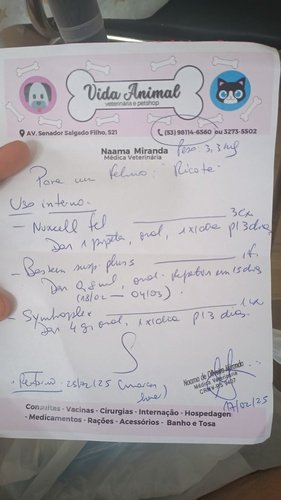 Vida Animal
veterinária e petshop
AV. Senador Salgado Filho, 521
(53) 98114-6560 ou 3273-5502
Naama Miranda
Médica Veterinária
Peso: 3,3 kg
Para um felino: Ricota
Uso interno:
- Nuxcell fel ___ 3cx
Dar 1 pipeta, oral, 1x/dia p/ 3 dias.
- Basken susp. plus ___ 1f.
Dar 0,8 ml, oral. Repetir em 15 dias
(18/02 — 04/03).
1cx
Dar 4 g, oral, 1x/dia p/ 3 dias.
25/02/25
Naama de Oliveira Miranda
Médica Veterinária
17/02/25
Consultas - Vacinas - Cirurgias - Internação - Hospedagem
- Medicamentos - Rações - Acessórios - Banho e Tosa